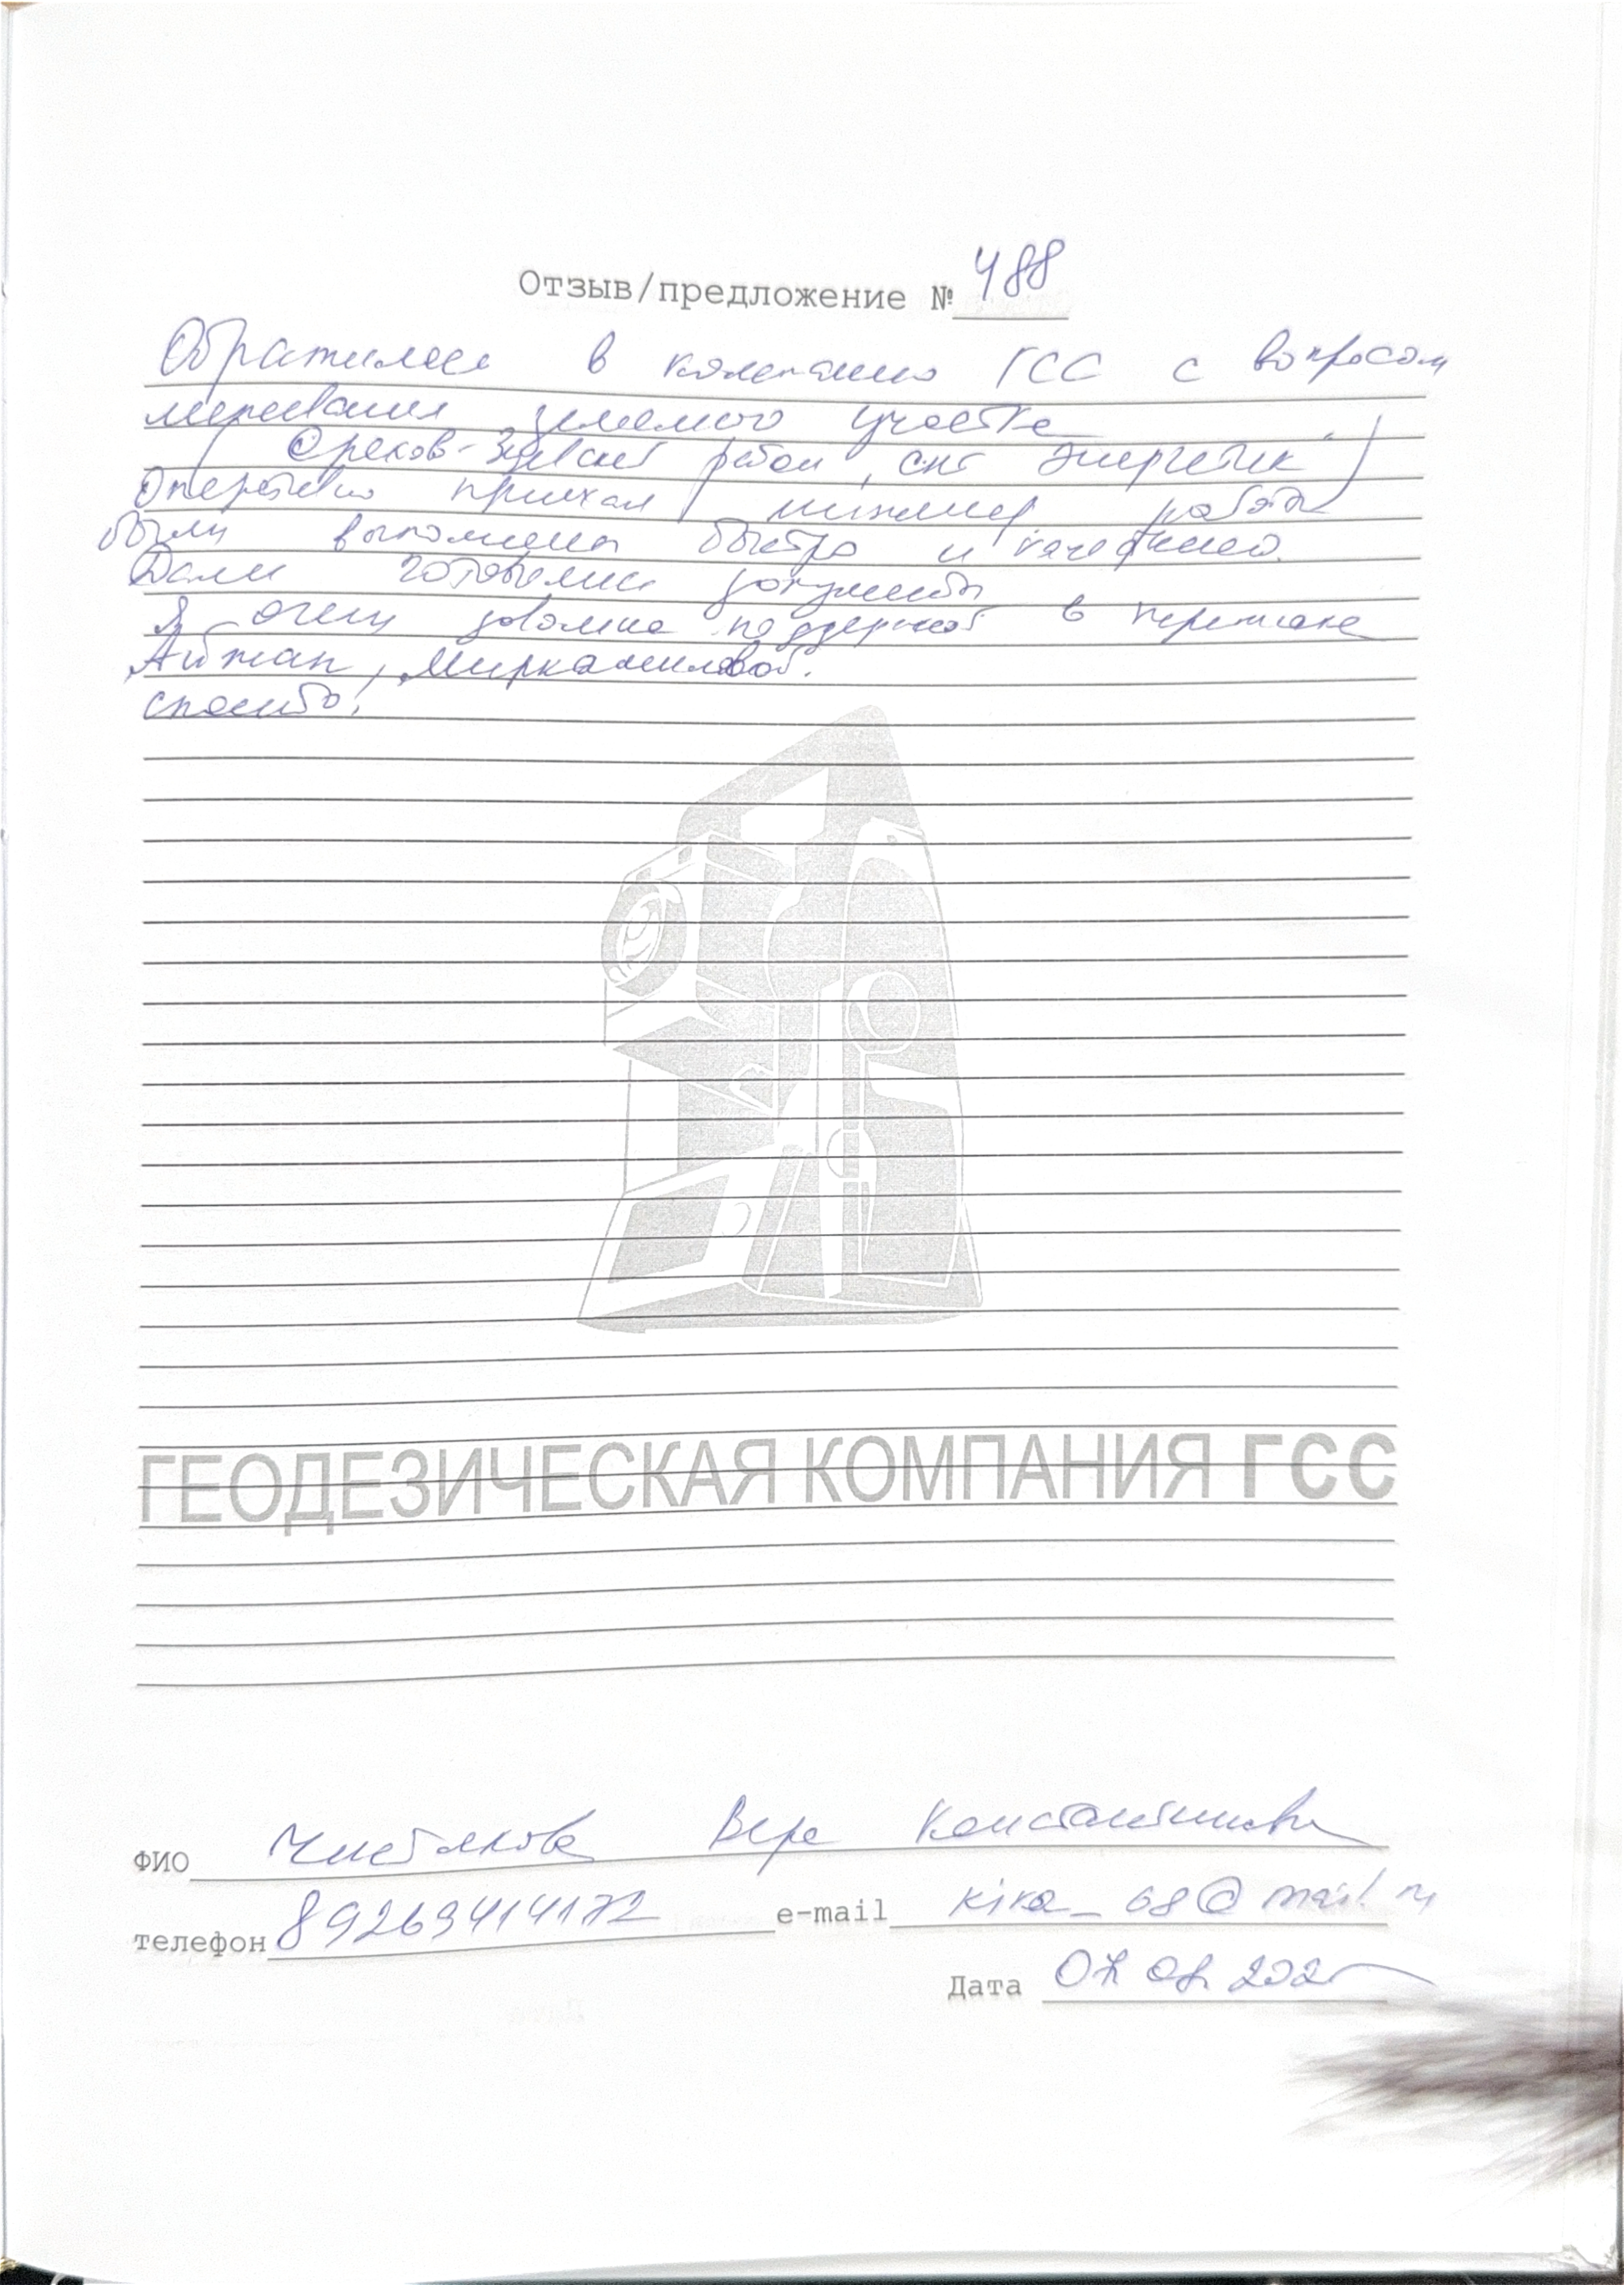 Отзыв/предложение № 488
Обратилась в компанию ГСС с вопросом
межевания земельного участка
(Орехов-Зуевский район, снт "Энергетик")
Оперативно приехал инженер, работы
были выполнены быстро и качественно.
Дали готовые документы
Я очень довольна поддержкой в
Айжан, Миркамиловой.
спасибо!
ГЕОДЕЗИЧЕСКАЯ КОМПАНИЯ ГСС
ФИО Чистякова Вера Константиновна
телефон 89269414172 e-mail kira_68@mail.ru
Дата 07.08.2025